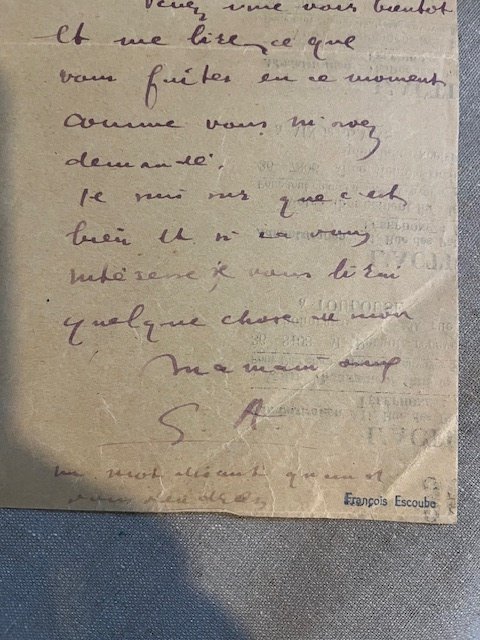 Venez me voir bientôt
Et me lirez ce que
vous faites en ce moment
comme vous m'avez
demandé.
Je suis sur que c'est
bien et si ça vous
intéresse je vous lirai
quelque chose de mon
Ma main amie
G. A.
un mot disant quand
vous viendrez
François Escoube
TOULOUSE